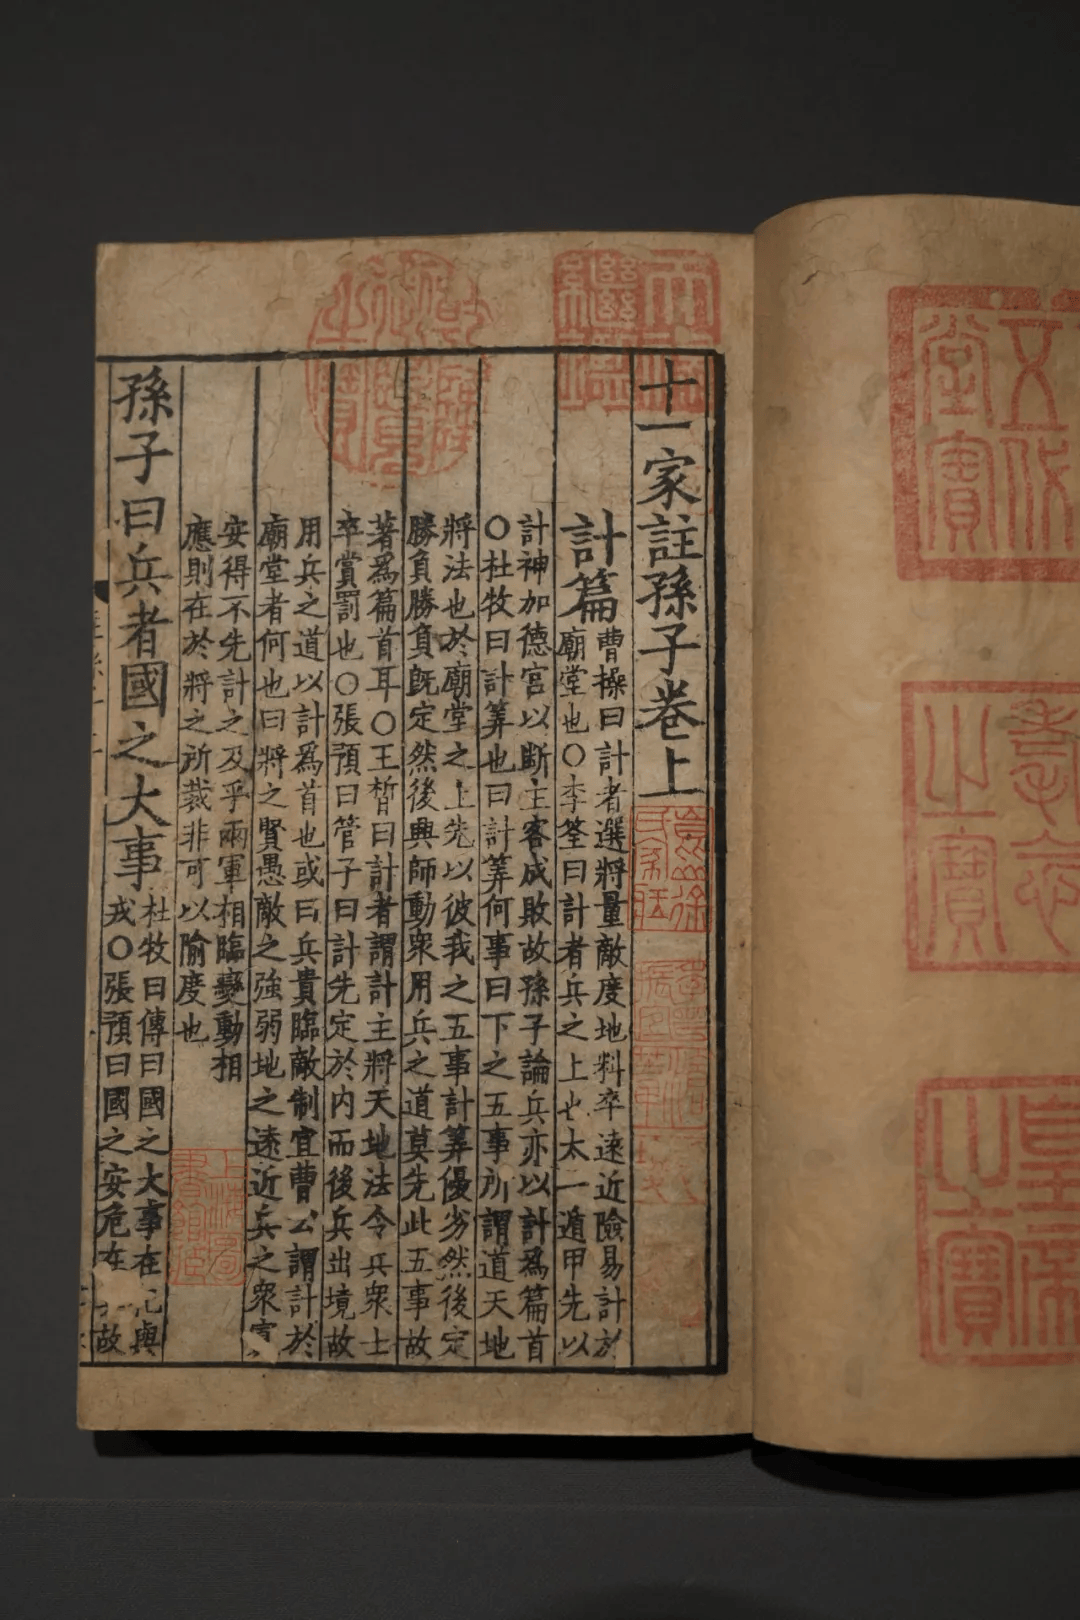 十一家註孫子卷上
計篇
曹操曰計者選將量敵度地料卒遠近險易計於
廟堂也○李筌曰計者兵之上也太一遁甲先以
計神加德宮以斷主客成敗故孫子論兵亦以計為篇首
○杜牧曰計筭也曰計筭何事曰下之五事所謂道天地
將法也於廟堂之上先以彼我之五事計筭優劣然後定
勝負勝負旣定然後興師動衆用兵之道莫先此五事故
著為篇首耳○王晳曰計者謂計主將天地法令兵衆士
卒賞罰也○張預曰管子曰計先定於內而後兵出境故
用兵之道以計為首也或曰兵貴臨敵制宜曹公謂計於
廟堂者何也曰將之賢愚敵之強弱地之遠近兵之衆寡
安得不先計之及乎兩軍相臨變動相
應則在於將之所裁非可以隃度也
孫子曰兵者國之大事
杜牧曰傳曰國之大事在祀與
戎○張預曰國之安危在 故
之寶
皇帝
之寶
上海圖
書館藏